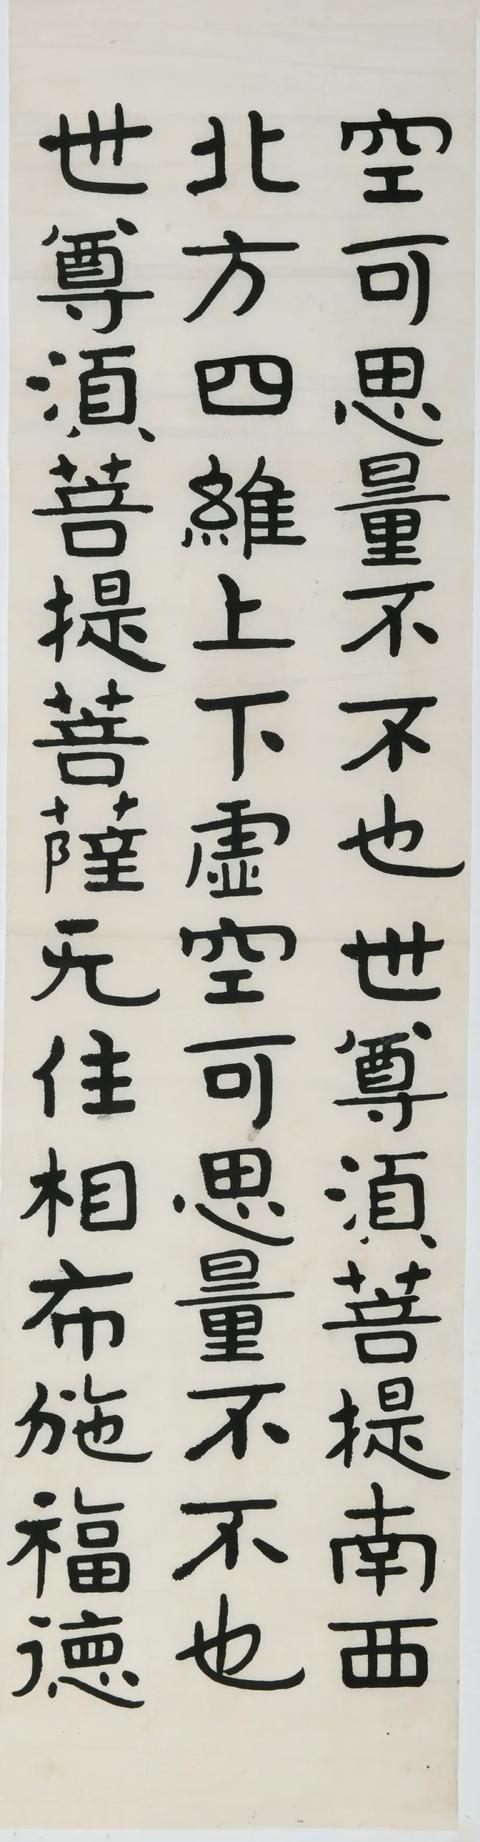 空可思量不不也世尊須菩提南西
北方四維上下虛空可思量不不也
世尊須菩提菩薩无住相布施福德